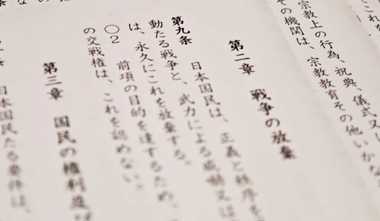 宗教上の行為、祝典、儀式又
その機関は、宗教教育その他いかな
第二章　戦争の放棄
第九条
日本国民は、正義と秩序を
動たる戦争と、武力による威嚇又
は、永久にこれを放棄する。
〇2　前項の目的を達するため、
の交戦権は、これを認めない。
第三章　国民の権利及び
日本国民たる要件は、